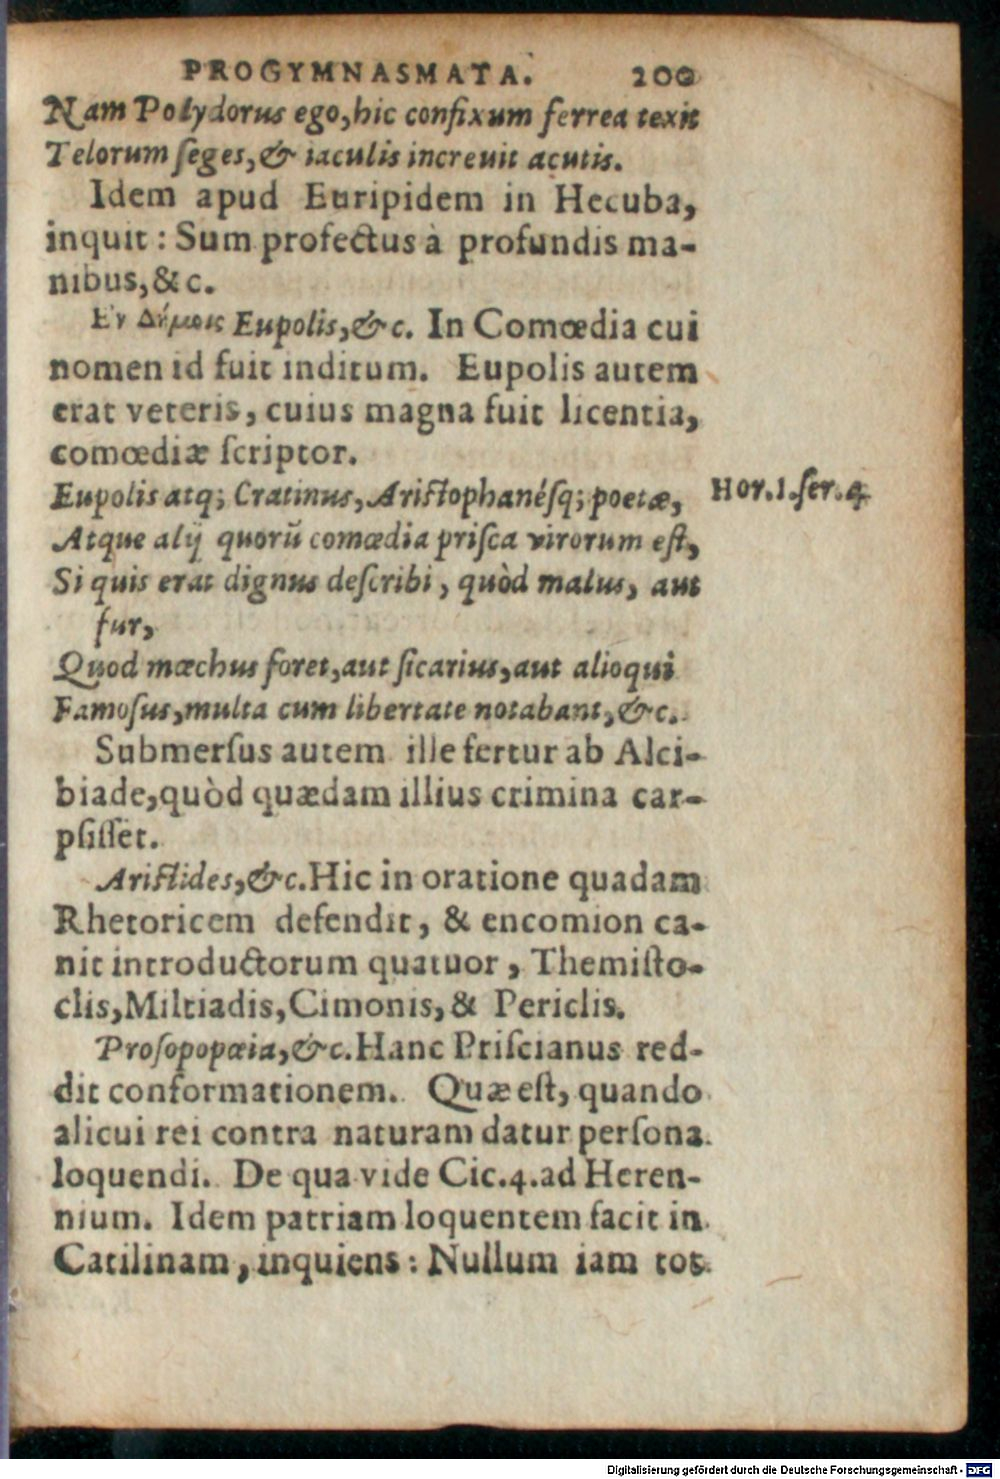 PROGYMNASMATA. 200
Nam Polydorus ego, hic confixum ferrea texit
Telorum ſeges, & iaculis increuit acutis.
Idem apud Euripidem in Hecuba,
inquit : Sum profectus à profundis ma-
nibus, &c.
Ἐν Δήμοις Eupolis, &c. In Comœdia cui
nomen id fuit inditum. Eupolis autem
erat veteris, cuius magna fuit licentia,
comœdiæ ſcriptor.
Eupolis atq; Cratinus, Ariſtophanéſq; poetæ,
Hor. 1. ſer. 4.
Atque alij quorū comœdia priſca virorum eſt,
Si quis erat dignus deſcribi, quòd malus, aut
fur,
Quod mœchus foret, aut ſicarius, aut alioqui
Famoſus, multa cum libertate notabant, &c.
Submerſus autem ille fertur ab Alci-
biade, quòd quædam illius crimina car-
pſiſſet.
Ariſtides, &c. Hic in oratione quadam
Rhetoricem defendit, & encomion ca-
nit introductorum quatuor, Themiſto-
clis, Miltiadis, Cimonis, & Periclis.
Proſopopœia, &c. Hanc Priſcianus red-
dit conformationem. Quæ eſt, quando
alicui rei contra naturam datur perſona
loquendi. De qua vide Cic. 4. ad Heren-
nium. Idem patriam loquentem facit in
Catilinam, inquiens : Nullum iam tot
Digitalisierung gefördert durch die Deutsche Forschungsgemeinschaft - DFG